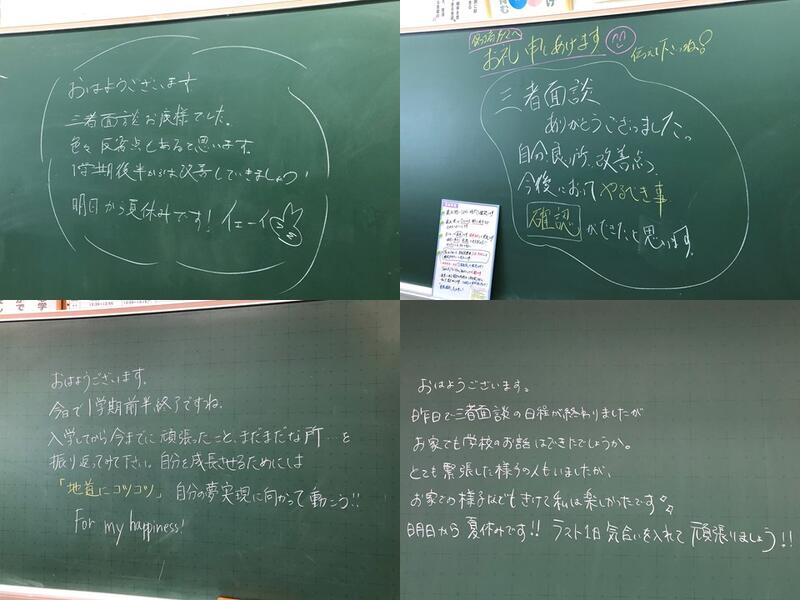 おはようございます
三者面談お疲様でした。
色々反省点もあると思います。
1学期後半からは改善していきましょう!
明日から夏休みです! イェーイ
お礼申しあげます
伝えて下さいね。
三者面談
ありがとうございました。
自分良い所、改善点、
今後においてやるべき事
確認ができたと思います。
おはようございます。
今日で1学期前半終了ですね。
入学してから今までに頑張ったこと、まだまだな所…を
振り返ってみて下さい。自分を成長させるためには
「地道にコツコツ」自分の夢実現に向かって動こう!!
For my happiness!
おはようございます。
昨日で三者面談の日程が終わりましたが
お家でも学校のお話はできたでしょうか。
とても緊張した様子の人もいましたが、
お家での様子などもきけて私は楽しかったです
明日から夏休みです!! ラスト1日気合いを入れて頑張りましょう!!